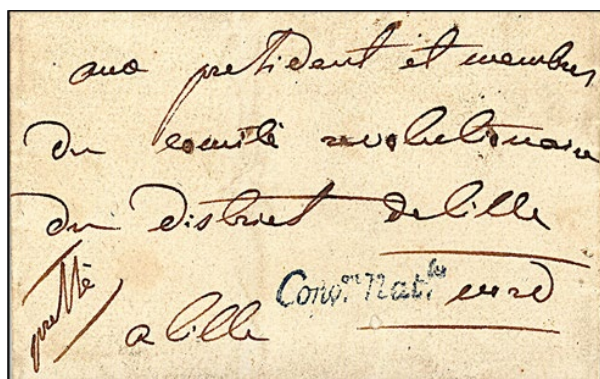 aux president et membres
du comité revolutionaire
du district de lille
pressé
a lille Conv.on Nat.le nord